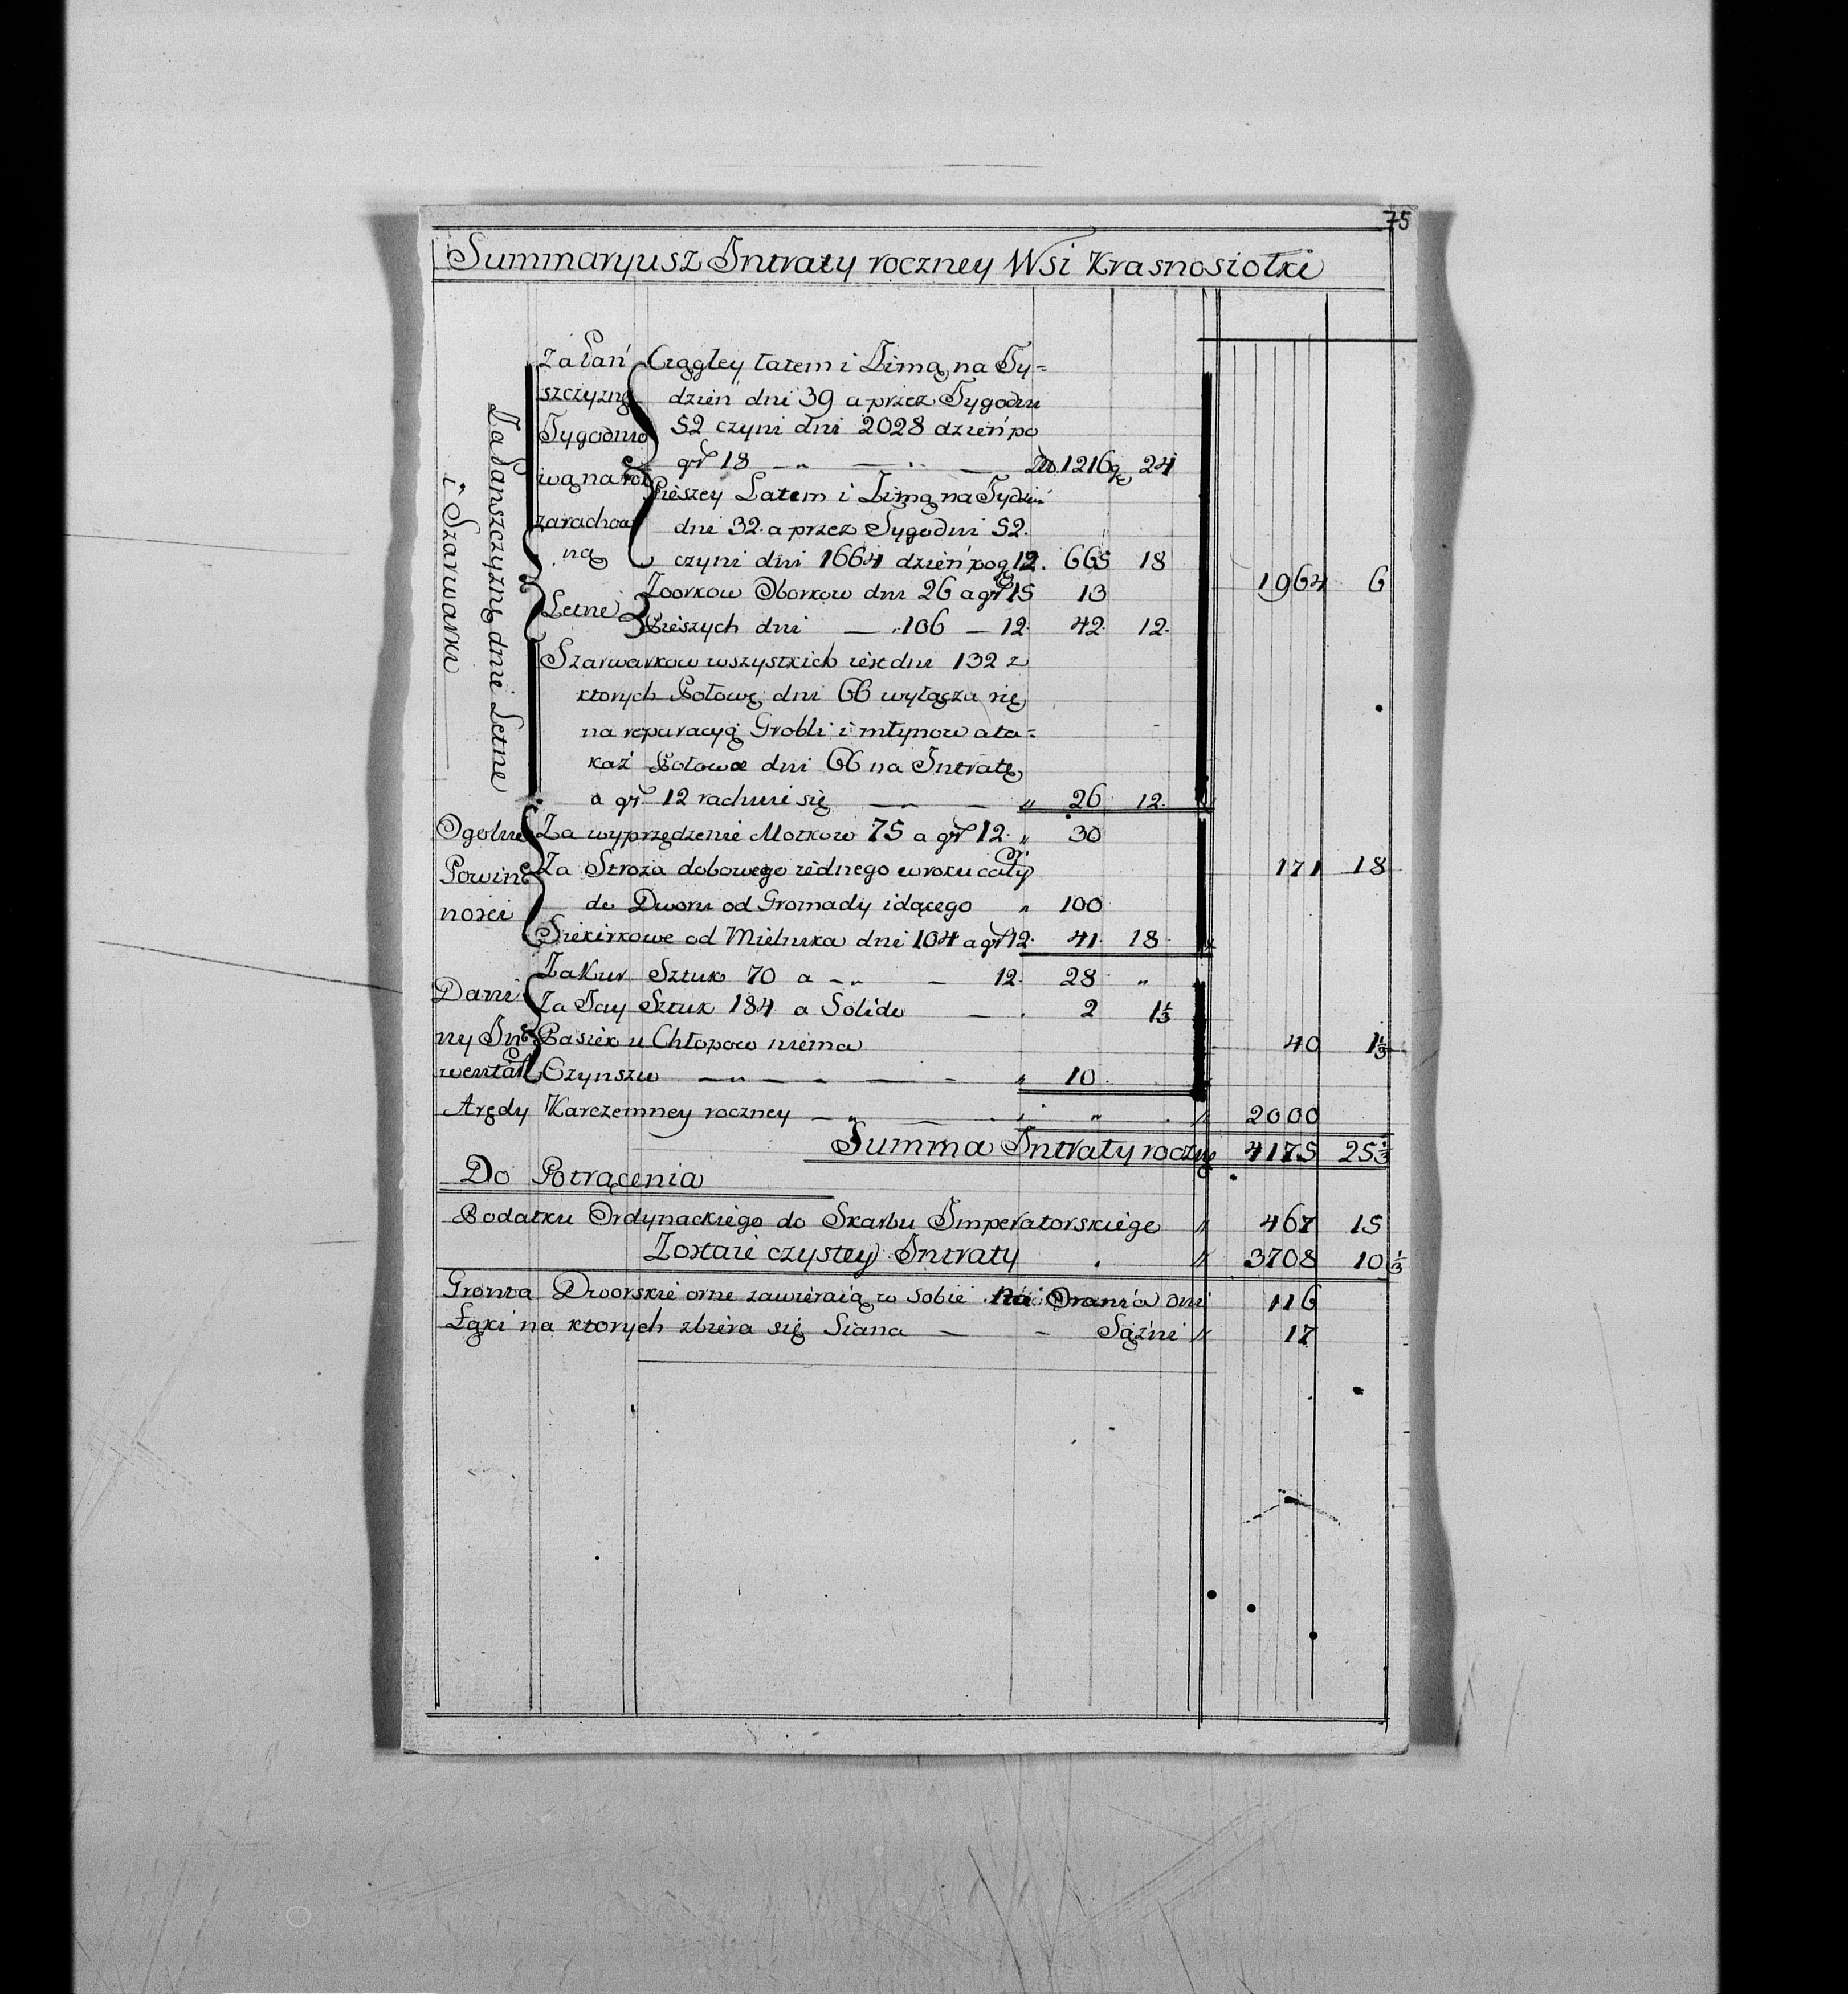 75
Summaryusz Intraty roczney Wsi Krasnosiołki
Za Pańszczyznę dnie Letne
i Szarwarki
Za Pań
szczyznę
Tygodnio
wą na rok
zarachowa
ną
Ciągłey łatem i Zimą na Ty=
dzień dni 39 a przez Tygodni
52 czyni dni 2028 dzień po
gr 18 — „ — „ — Zło. 1216 gr 24
Pieszey Latem i Zimą na Tydzień
dni 32. a przez Tygodni 52.
czyni dni 1664 dzień po g 12. 665 18
1964 6
Letne
Zborkow Oborkow dni 26 a gr 15 13
Pieszych dni — „ 106 — 12. 42. 12.
Szarwarkow wszystkich iest dni 132 z
ktorych Połowę dni 66 wyłącza się
na reparacyą Grobli i młynow a ta=
kaź Połowa dni 66 na Intratę
a gr 12 rachuie się — „ — „ 26 12.
Ogolne
Powin
nosci
Za wyprzędzenie Motkow 75 a gr 12. „ 30
Za Stroża dobowego iednego w roku cały
do Dworu od Gromady idącego „ 100
Siekirkowe od Mielnika dni 104 a gr 12. 41. 18.
171 18
Dani
ny In
wentar
Za Kur Sztuk 70 a — „ — 12. 28 „
Za Jay Sztuk 184 a Solidu — . 2 1⅓
Pasiek u Chłopow niema
Czynszu — „ — — — „ 10.
40 1⅓
Arędy Karczemney roczney — „ — „ „ 2000
Summa Intraty roczney 4175 25⅓
Do Potrącenia
Podatku Ordynackiego do Skarbu Imperatorskiego „ 467 15
Zostaie czystey Intraty . „ 3708 10⅓
Gronta Dworskie orne zawieraią w sobie na Orania dni 116
Łąki na ktorych zbiera się Siana — - Sążni „ 17